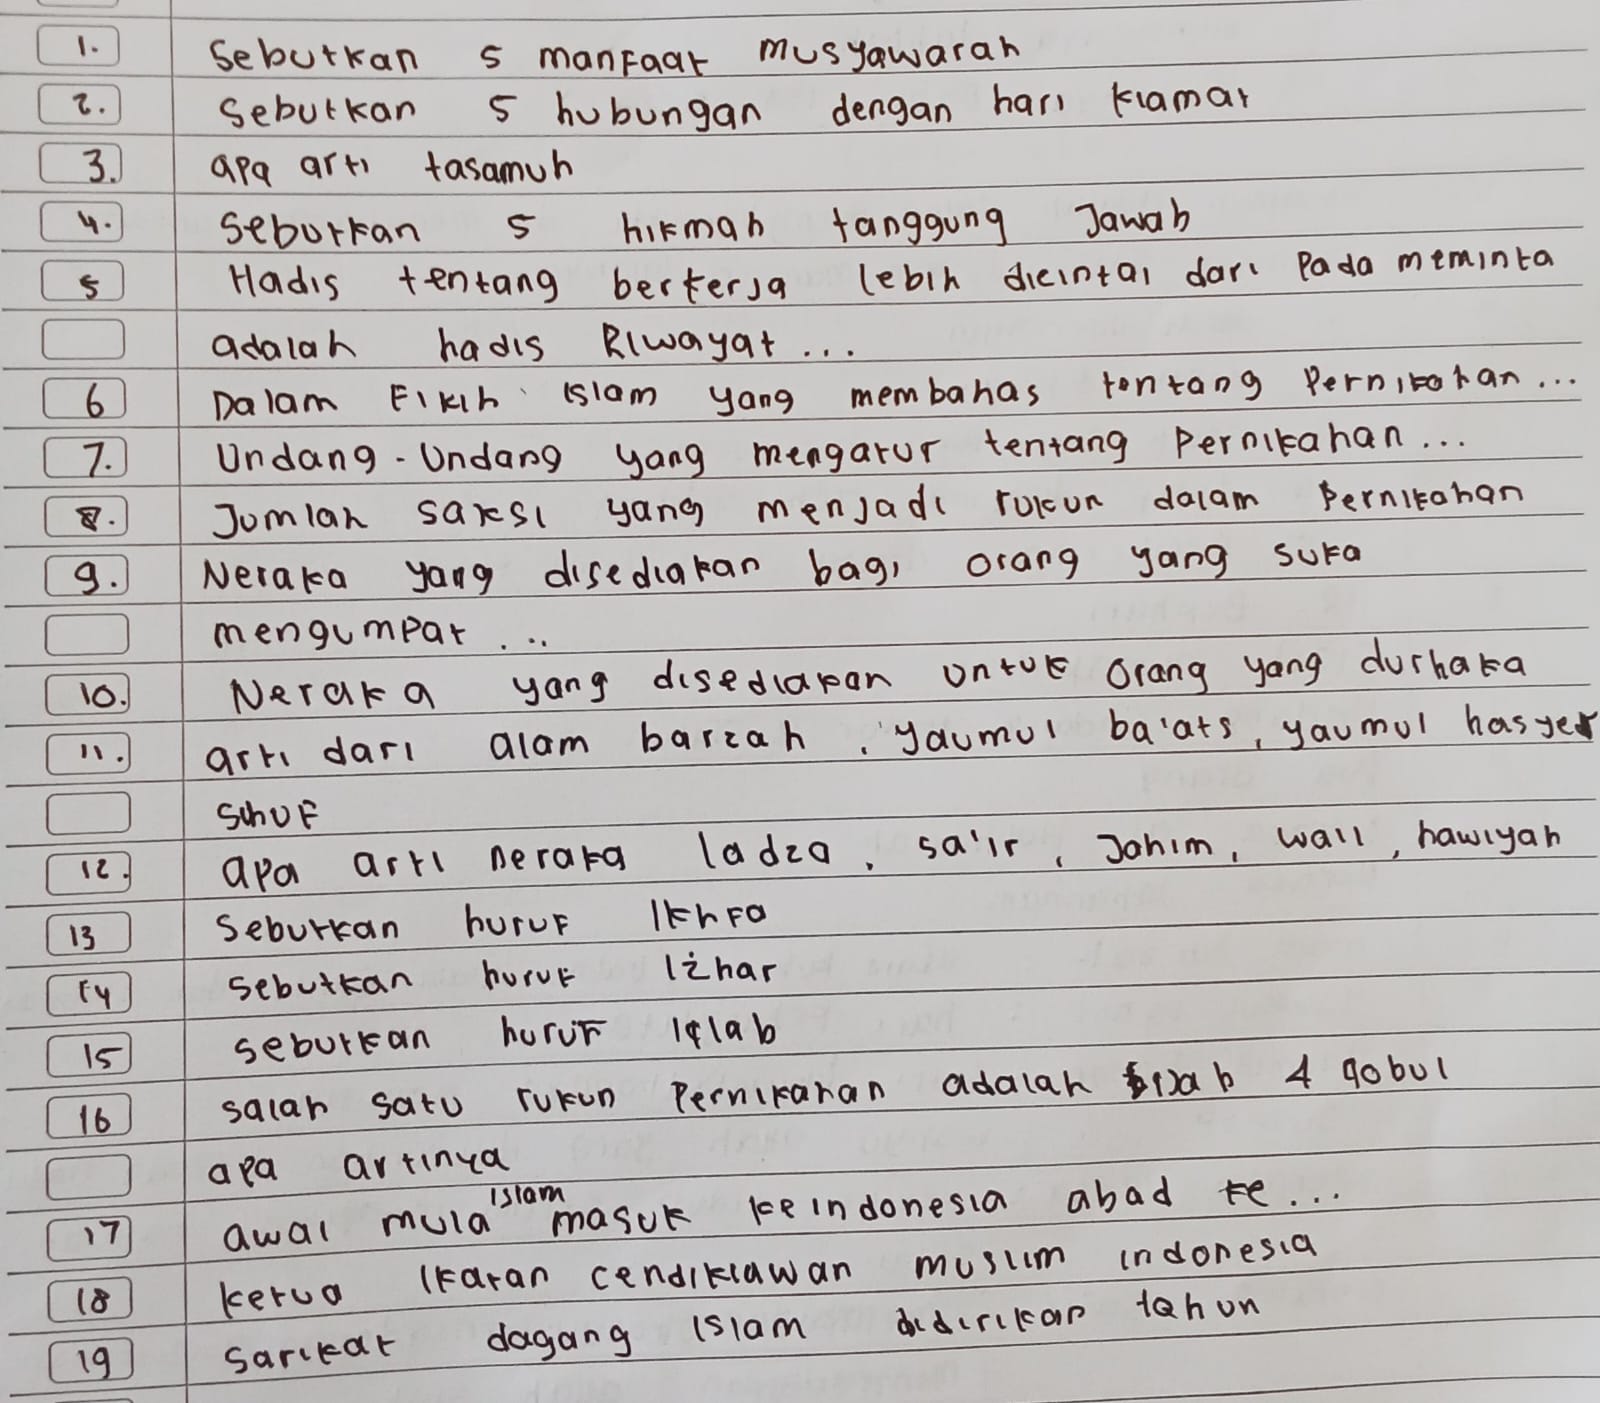 1. Sebutkan 5 manfaat musyawarah
2. Sebutkan 5 hubungan dengan hari kiamat
3. apa arti tasamuh
4. Sebutkan 5 hikmah tanggung Jawab
5 Hadis tentang berkerja lebih dicintai dari pada meminta
adalah hadis Riwayat ...
6 Dalam Fikih Islam yang membahas tentang Pernikahan ...
7. Undang - Undang yang mengatur tentang Pernikahan ...
8. Jumlah saksi yang menjadi rukun dalam Pernikahan
9. Neraka yang disediakan bagi orang yang suka
mengumpat ...
10. Neraka yang disediakan untuk orang yang durhaka
11. arti dari alam barzah, yaumul ba'ats, yaumul hasyer
suhuf
12. apa arti neraka ladza, sa'ir, Jahim, wail, hawiyah
13 Sebutkan huruf Ikhfa
14 Sebutkan huruf Iżhar
15 sebutkan huruf Iqlab
16 salah satu rukun Pernikahan adalah ijab & qobul
apa artinya
17 awal mula islam masuk ke indonesia abad ke ...
18 ketua Ikatan cendikiawan muslim indonesia
19 sarikat dagang Islam didirikan tahun